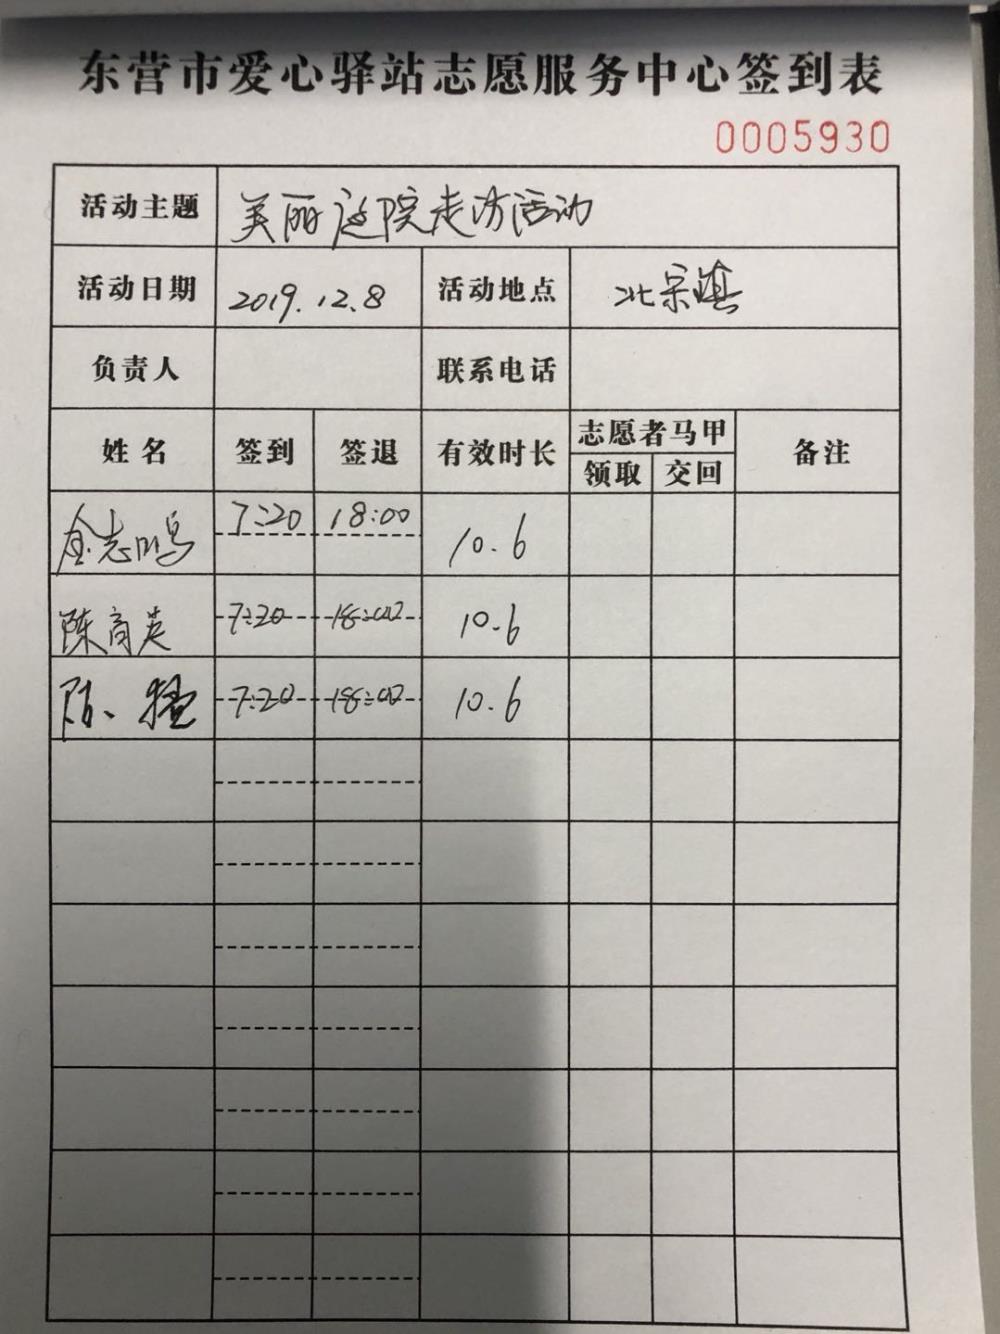 东营市爱心驿站志愿服务中心签到表
0005930
活动主题 美丽庭院走访活动
活动日期 2019.12.8 活动地点 北宋镇
负责人 联系电话
姓名 签到 签退 有效时长 志愿者马甲 备注
领取 交回
志鸣 7:20 18:00 10.6
陈英 7:20 18:00 10.6
陈 7:20 18:00 10.6